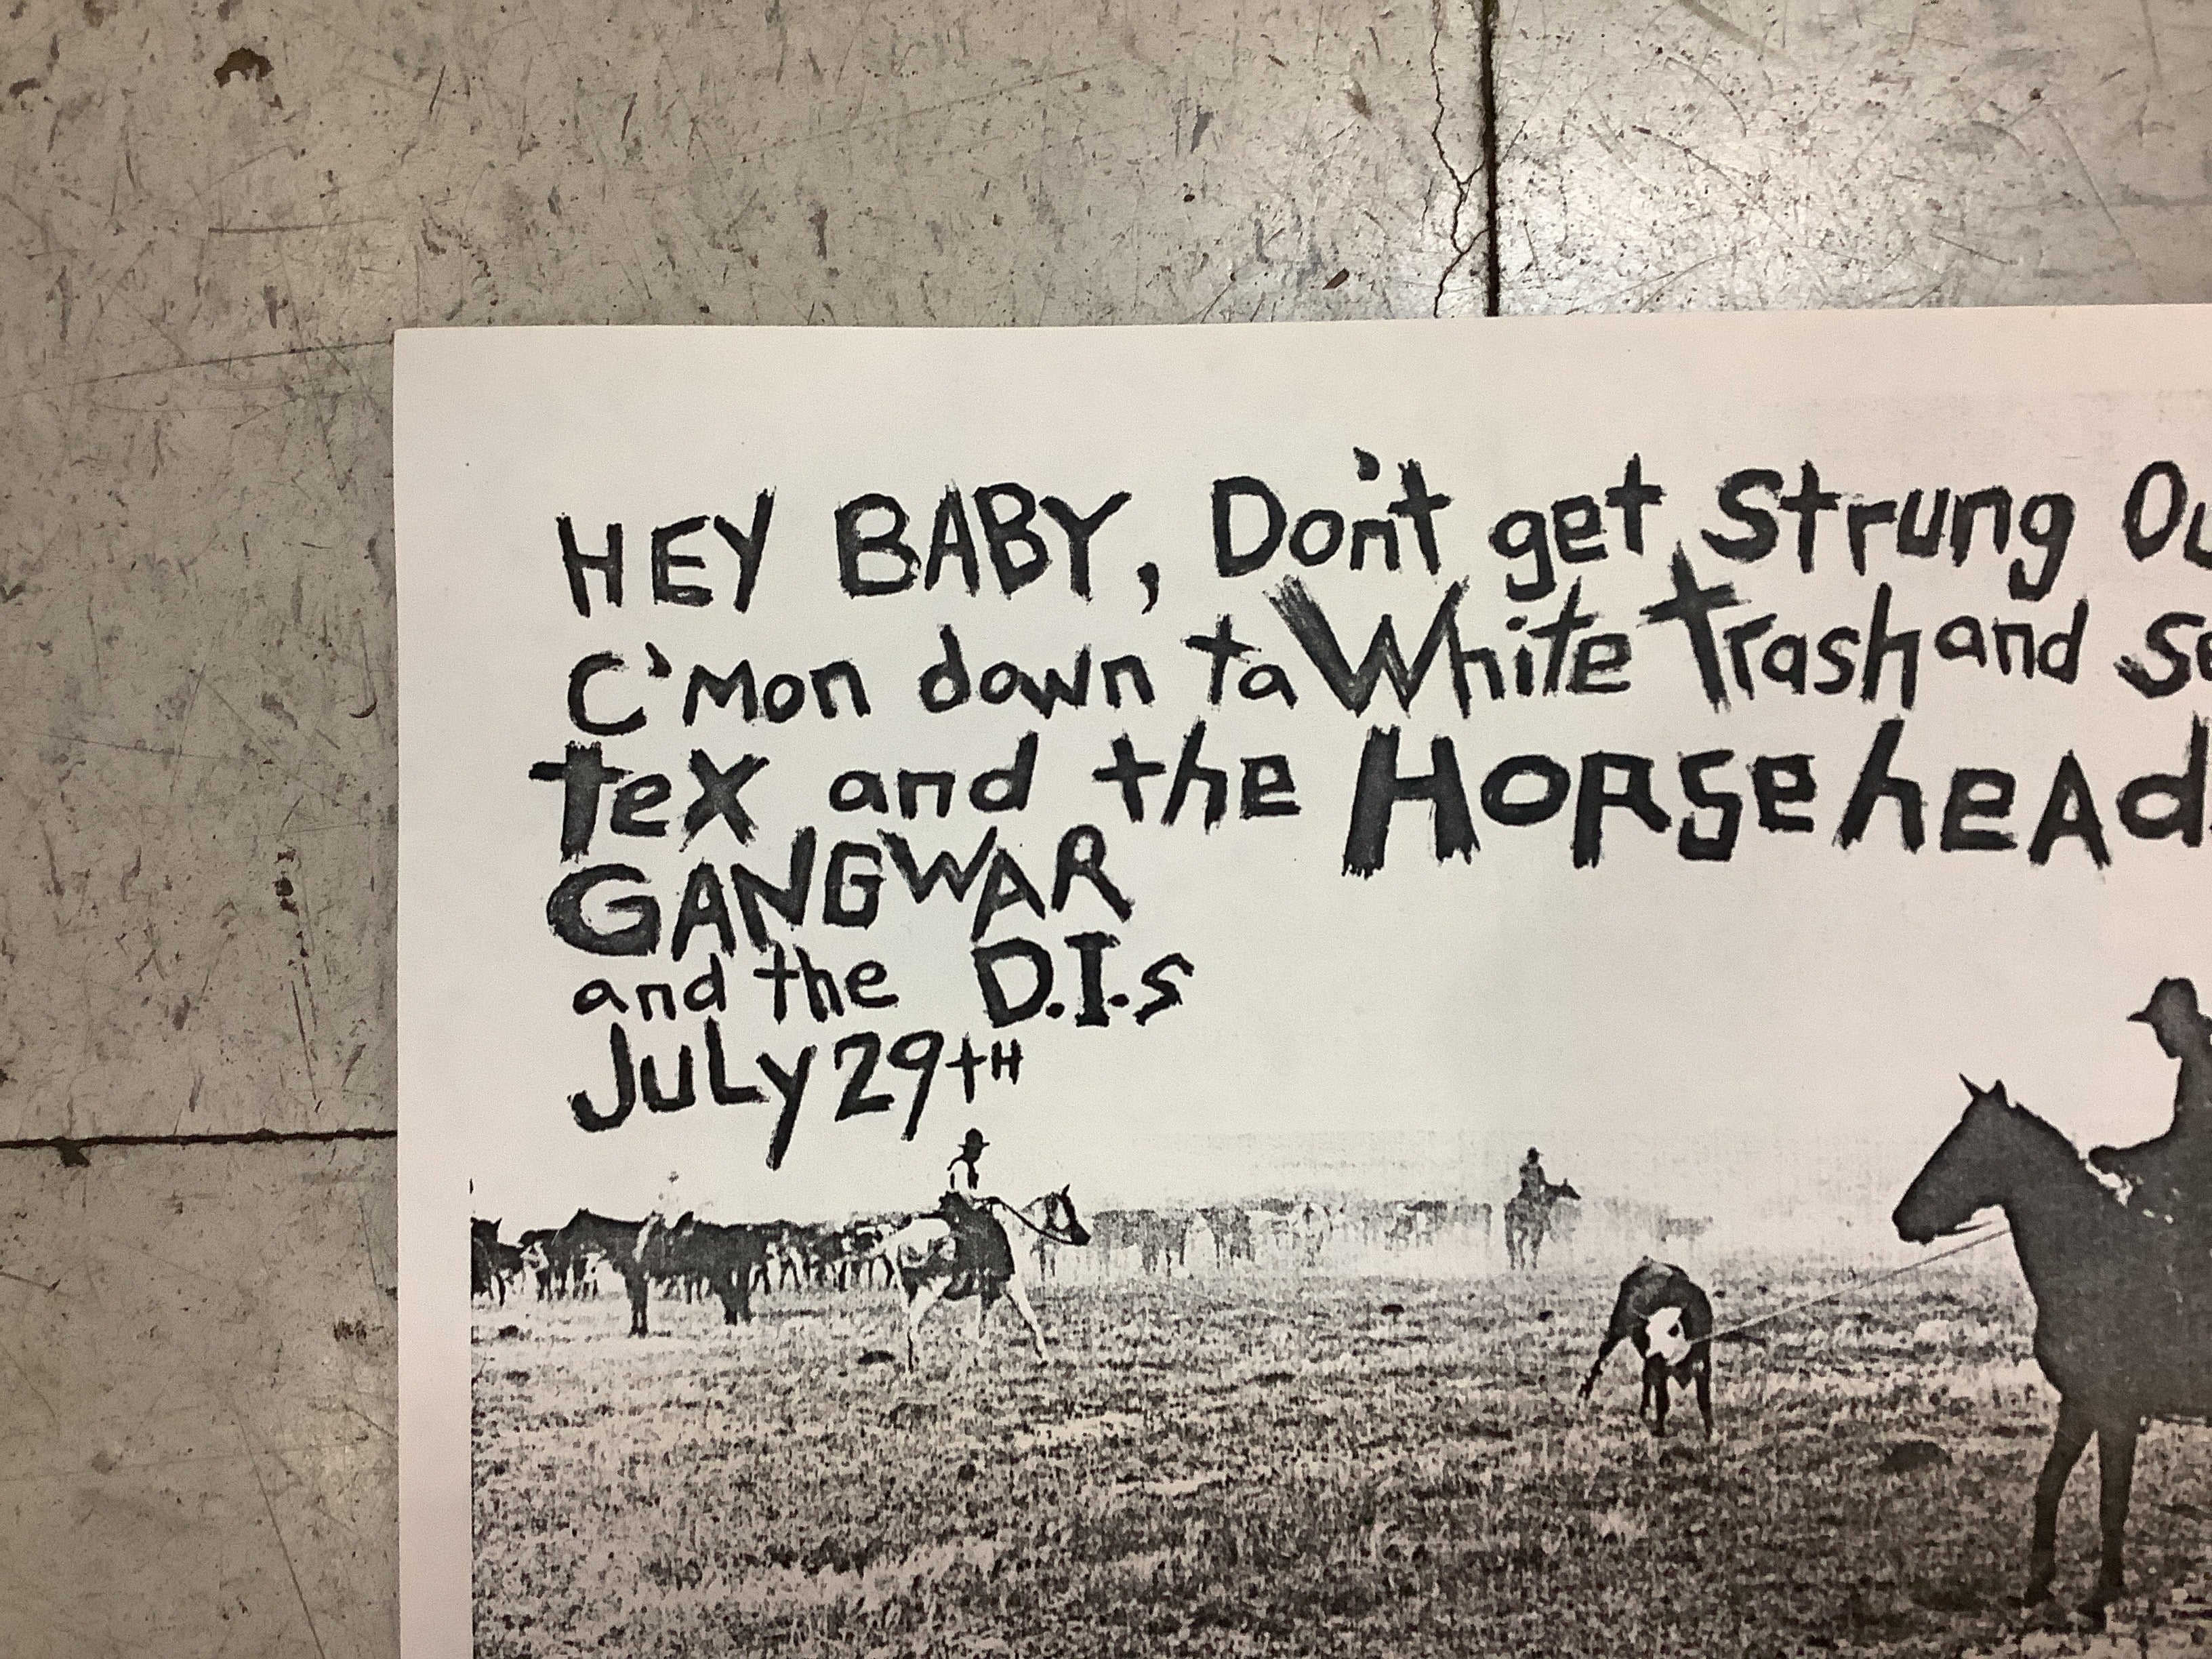 HEY BABY, Don't get Strung Ou
C'mon down ta White Trash and se
tex and the HORSeheAd
GANGWAR
and the D.I.s
JuLy 29tH